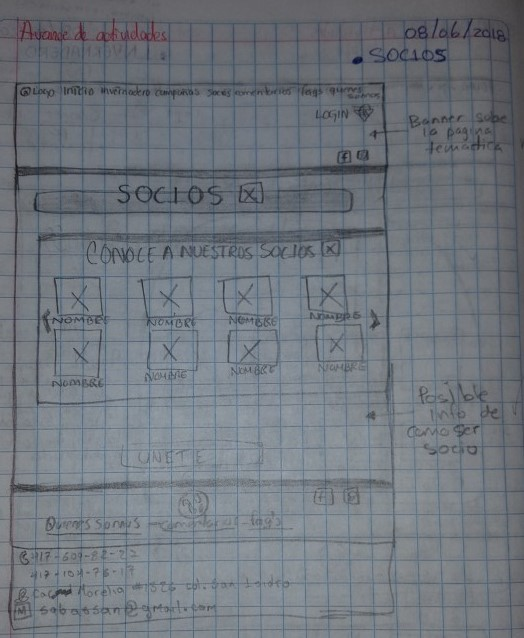 Avance de actividades
08/06/2018
• SOCIOS
Logo Inicio Invernadero composias socios comentarios faqs quienes somos
LOGIN
Banner sobre
la pagina
tematica
f
SOCIOS X
CONOCE A NUESTROS SOCIOS X
X X X X
NOMBRE NOMBRE NOMBRE NOMBRE
X X X X
NOMBRE NOMBRE NOMBRE NOMBRE
Posible
info de
como ser
socio
UNETE
f
Quienes somos - comentarios - faq's
417-609-82-22
417-104-75-17
Morelio #1526 col. San Isidro
M sabassan@gmail.com